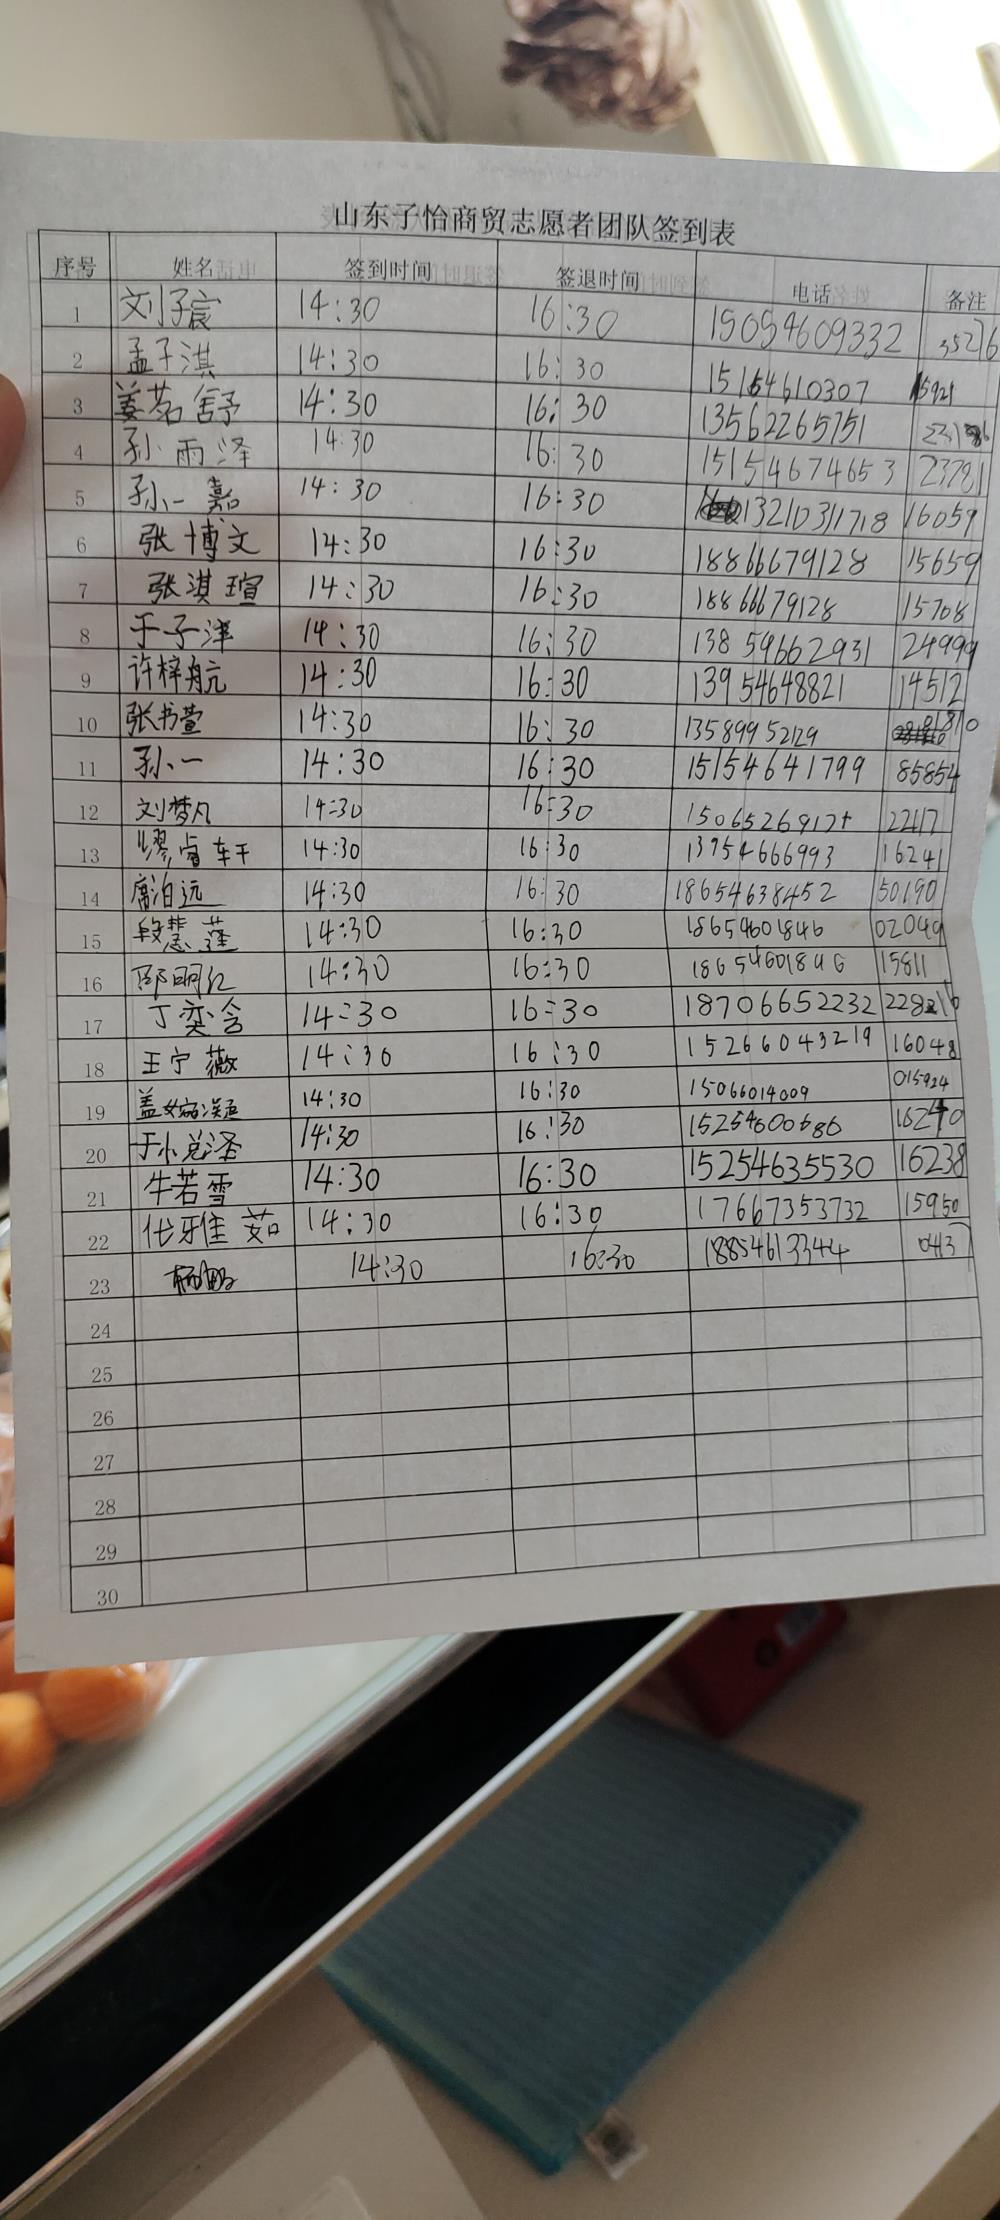 山东子怡商贸志愿者团队签到表
序号 姓名 签到时间 签退时间 电话 备注
1 刘子宸 14:30 16:30 15054609332 35276
2 孟子淇 14:30 16:30 15154610307 15921
3 姜茗舒 14:30 16:30 13562265751
4 孙雨泽 14:30 16:30 15154674653 23781
5 孙一嘉 14:30 16:30 13210311718 16059
6 张博文 14:30 16:30 18866679128 15659
7 张淇瑄 14:30 16:30 18866679128 15708
8 于子洋 14:30 16:30 13859662931 24999
9 许梓航 14:30 16:30 13954648821 14512
10 张书萱 14:30 16:30 13589952129 01810
11 孙一 14:30 16:30 15154641799 85854
12 刘梦凡 14:30 16:30 22417
13 缪睿轩 14:30 16:30 13954666993 16241
14 席泊远 14:30 16:30 18654638452 50190
15 段慧蓬 14:30 16:30 18654601846 02049
16 邵明仁 14:30 16:30 18654601846 15811
17 丁奕含 14:30 16:30 18706652232
18 王宁薇 14:30 16:30 15266043219 16048
19 14:30 16:30 15066014009 015924
20 14:30 16:30 15254600686 16240
21 牛若雪 14:30 16:30 15254635530 16238
22 14:30 16:30 17667353732 15950
23 14:30 16:30 18854613344 0437
24
25
26
27
28
29
30